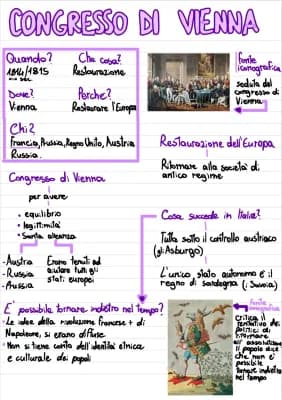 CONGRESSO DI VIENNA
Quando?
1814/1815
Che cosa?
Restaurazione
Dove?
Vienna
Perche?
Restaurare l'Europa
Chi?
Francia, Prussia, Regno Unito, Austria
Russia.
fonte
iconografica
seduta del
congresso di
Vienna
Restaurazione dell'Europa
Ritornare alla società di
antico regime
Congresso di Vienna
per avere
• equilibrio
• legittimità
• Santa alleanza
- Austria
- Russia
Erano tenuti ad
aiutare tutti gli
stati europei
Cosa succede in Italia?
Tutta sotto il controllo austriaco
(gli Asburgo)
L'unico stato autonomo è il
regno di Sardegna (i Savoia)
E' possibile tornare indietro nel tempo?
• Le idee della rivoluzione francese + di
Napoleone, si erano diffuse
• Non si tiene conto dell'identità etnica
e culturale dei popoli
fonte
iconografica
critica il
tentativo dei
politici di
ritornare
all'assolutismo
il popolo dice
che non è
possibile
tornare indietro
nel tempo